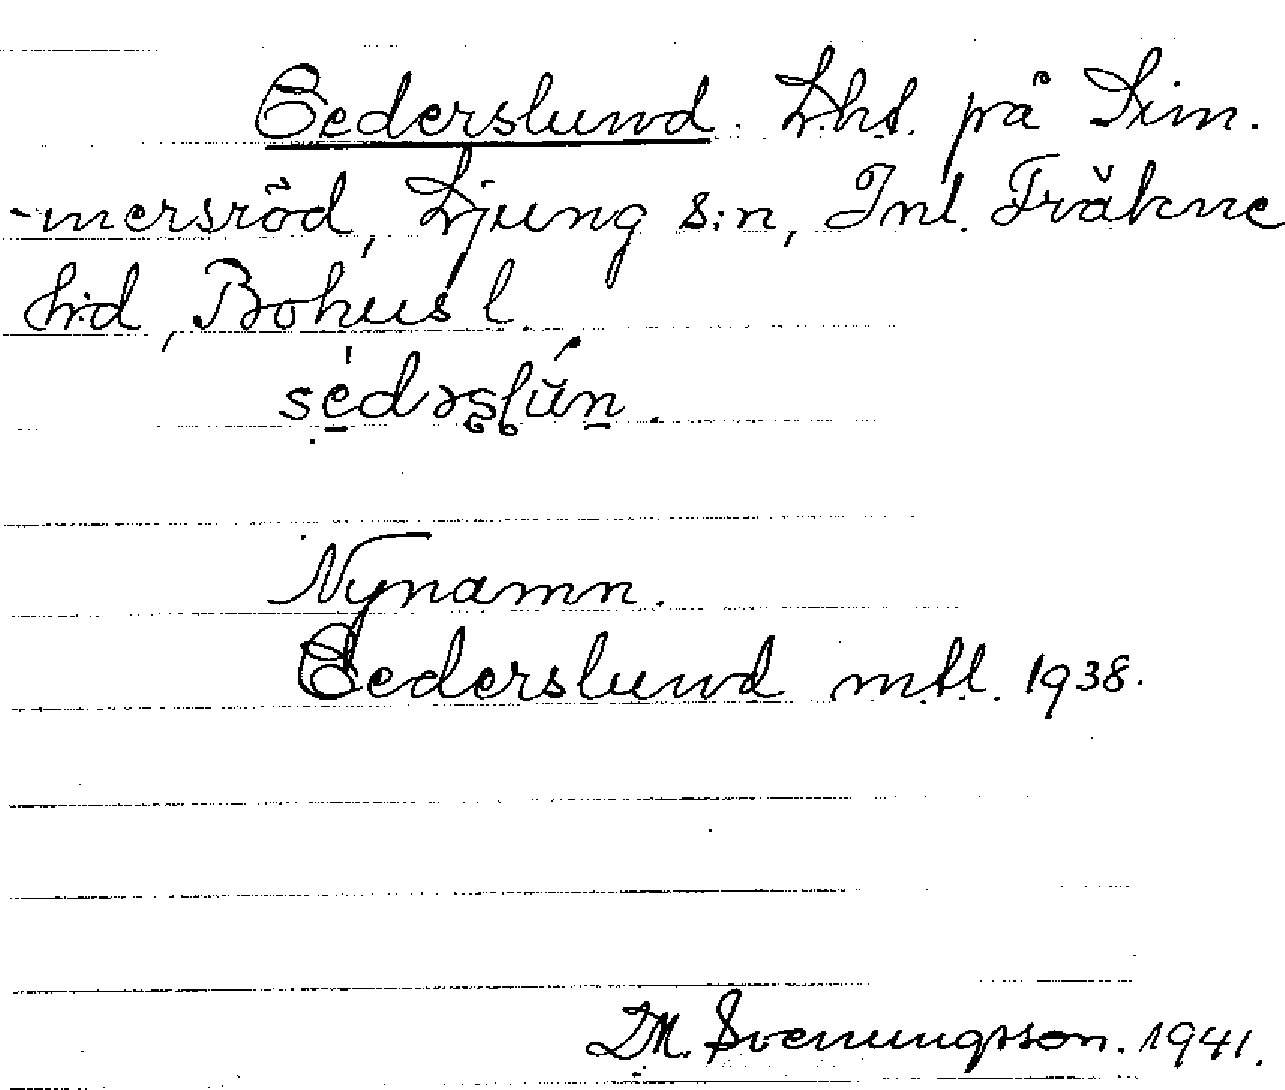 Cederslund. Lht. på Sim-
-mersröd, Ljung s:n, Inl. Fräkne
h:d, Bohusl.
sédəʂɭùn.
Nynamn.
Cederslund mtl. 1938.
D.M. Svenungsson. 1941.